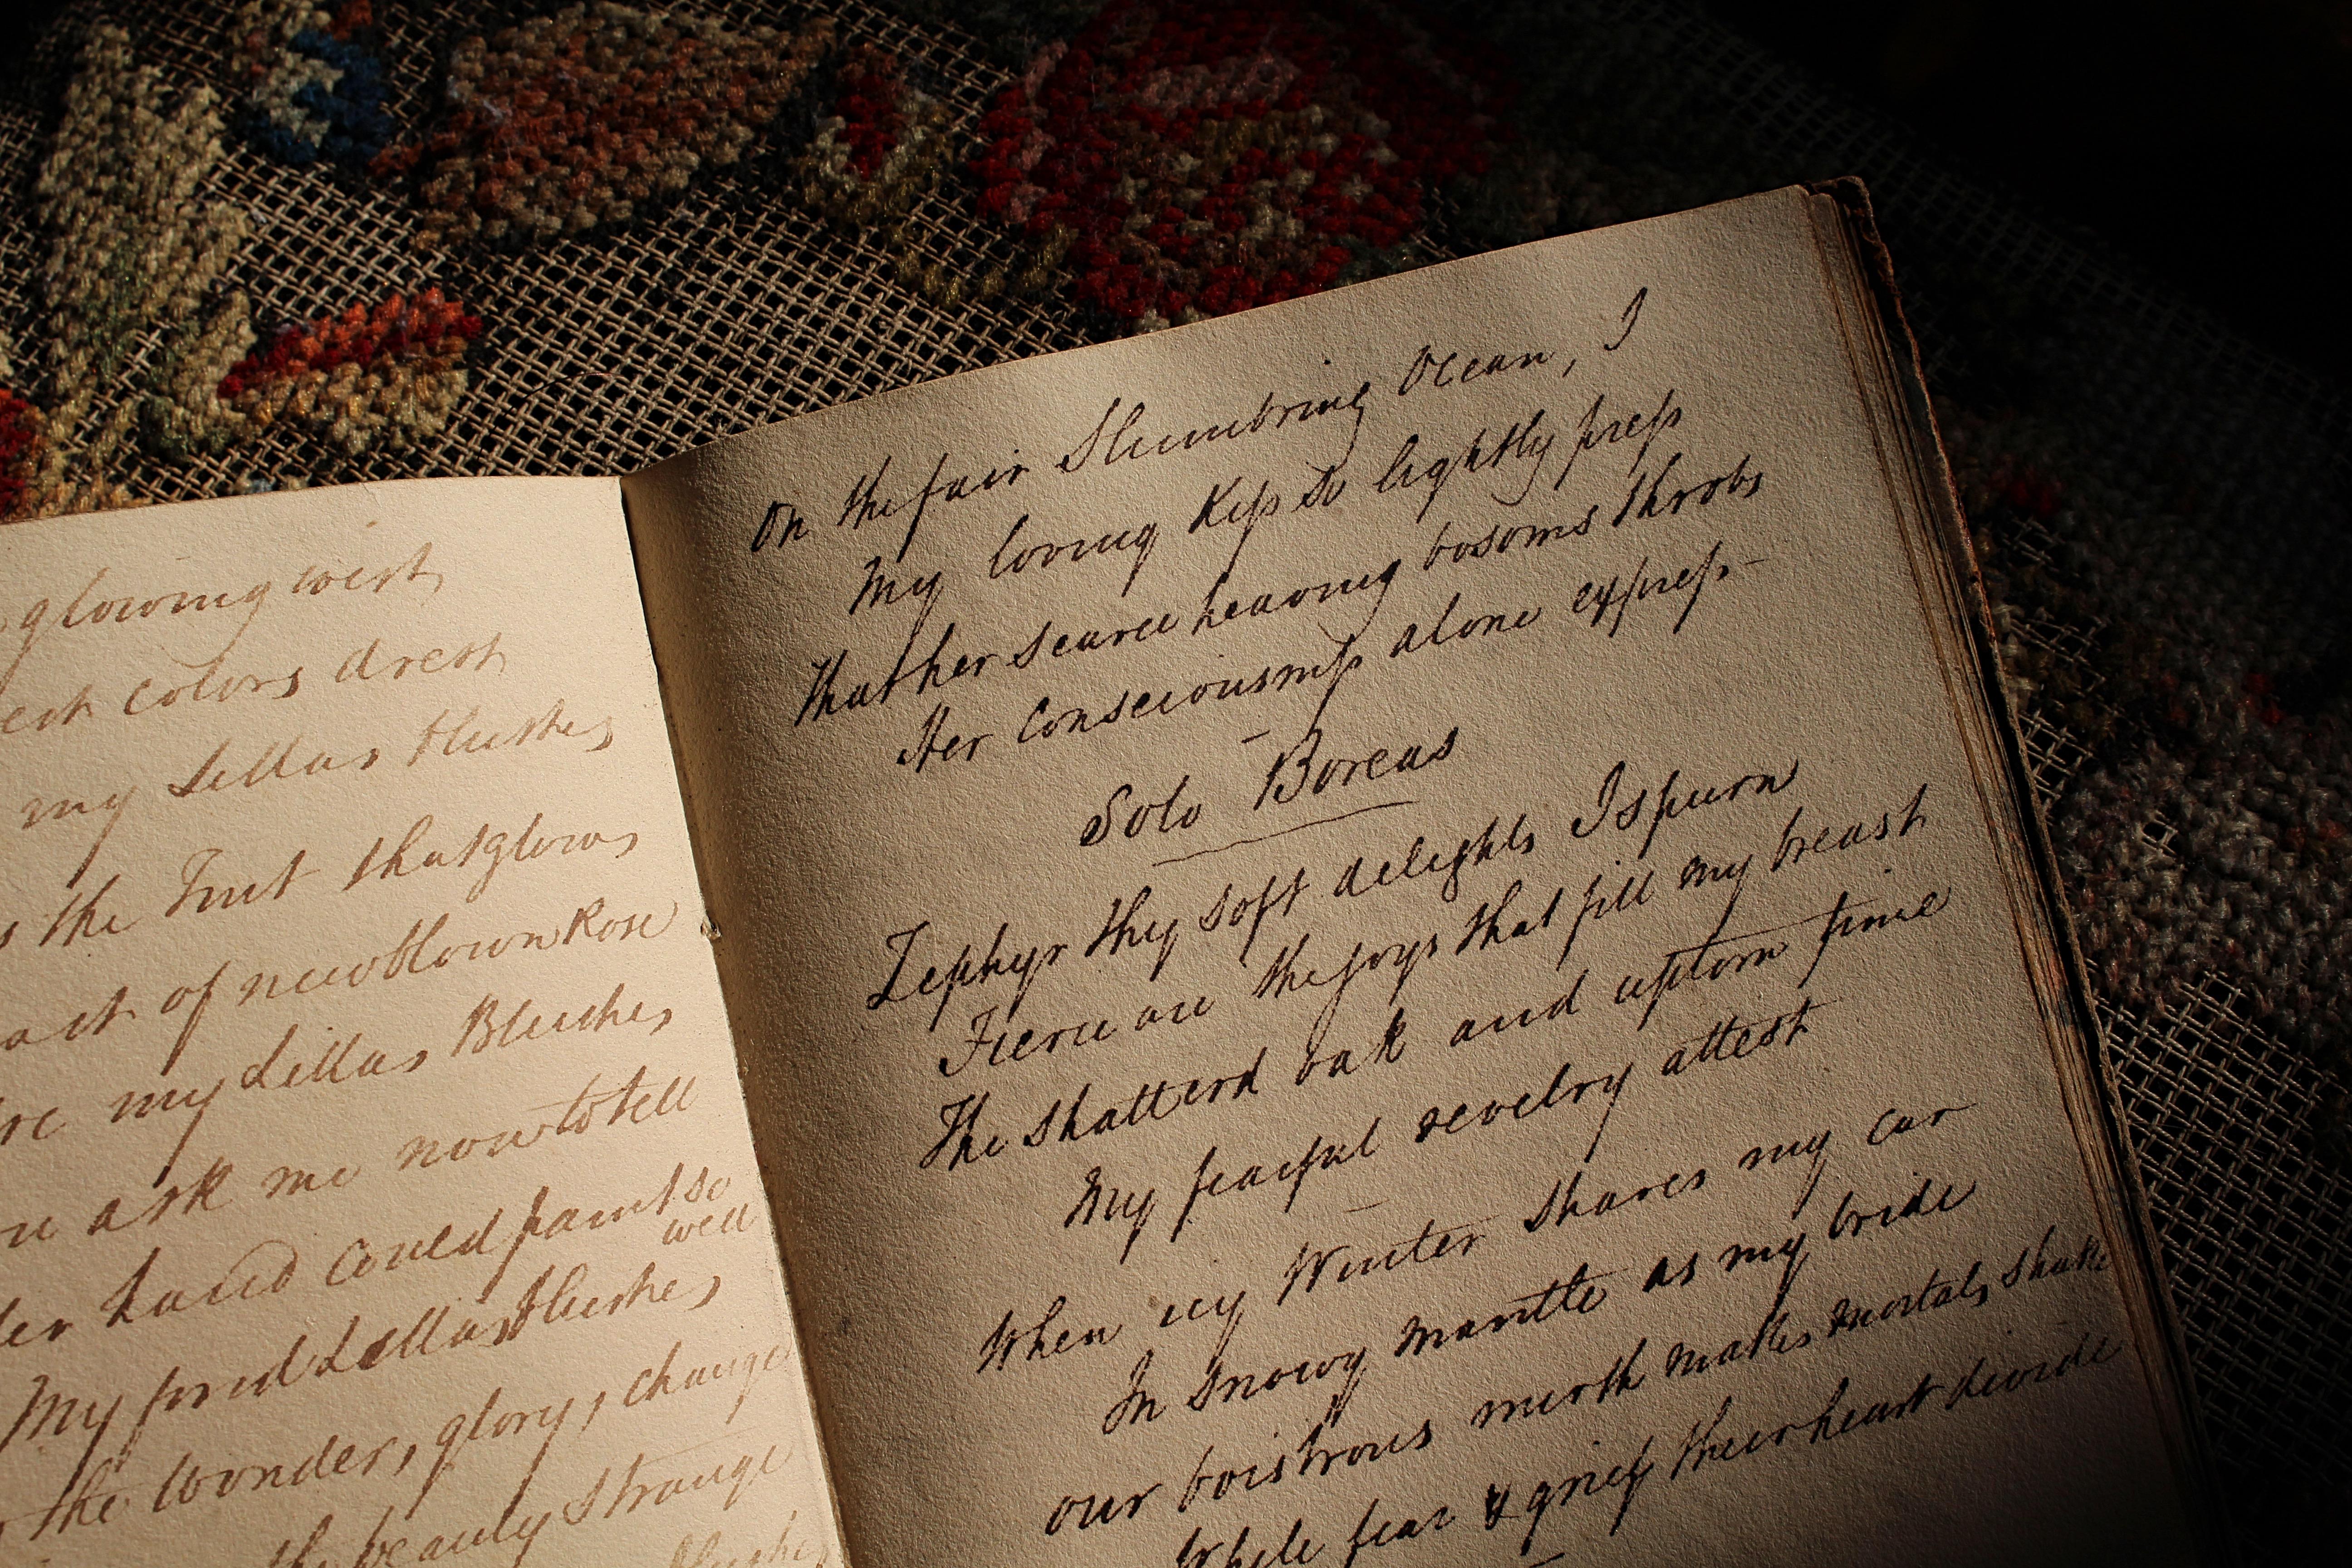 glowing west,
colors drest,
my Lillas blushes,
the Fruit that glows
of new blown Rose
my Lillas Blushes,
ask me now to tell
hand could paint so
well
My fond Lillas blushes,
the wonder, glory, change
the beauty strange
On the fair Slumbring Ocean, I
My loving Kiss so lightly press
That her scarce heaving bosoms throbs
Her Consciousness alone express -
Solo Boreas
Zephyr thy soft delights I spurn
Fierce are the joys that fill my breast
The shatterd oak and uptorn pine
My fearful revelry attest
When icy Winter shares my car
In snowy mantle as my bride
our boistrous mirth makes mortals shake
While fear & grief their heart divide